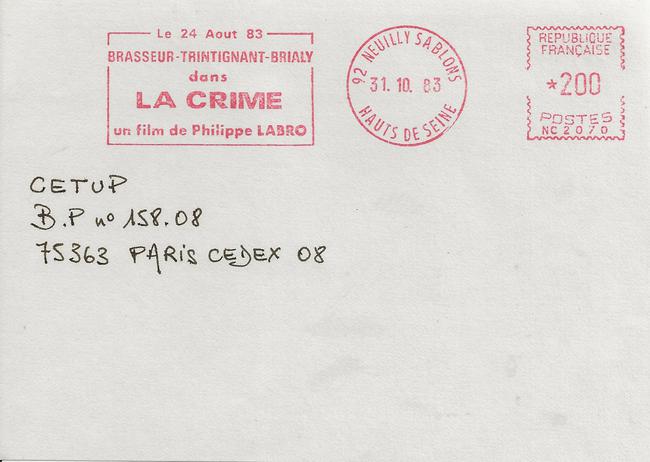 Le 24 Aout 83
BRASSEUR-TRINTIGNANT-BRIALY
dans
LA CRIME
un film de Philippe LABRO
92 NEUILLY SABLONS
31.10.83
HAUTS DE SEINE
REPUBLIQUE
FRANÇAISE
*200
POSTES
NC 2070
CETUP
B.P nº 158.08
75363 PARIS CEDEX 08